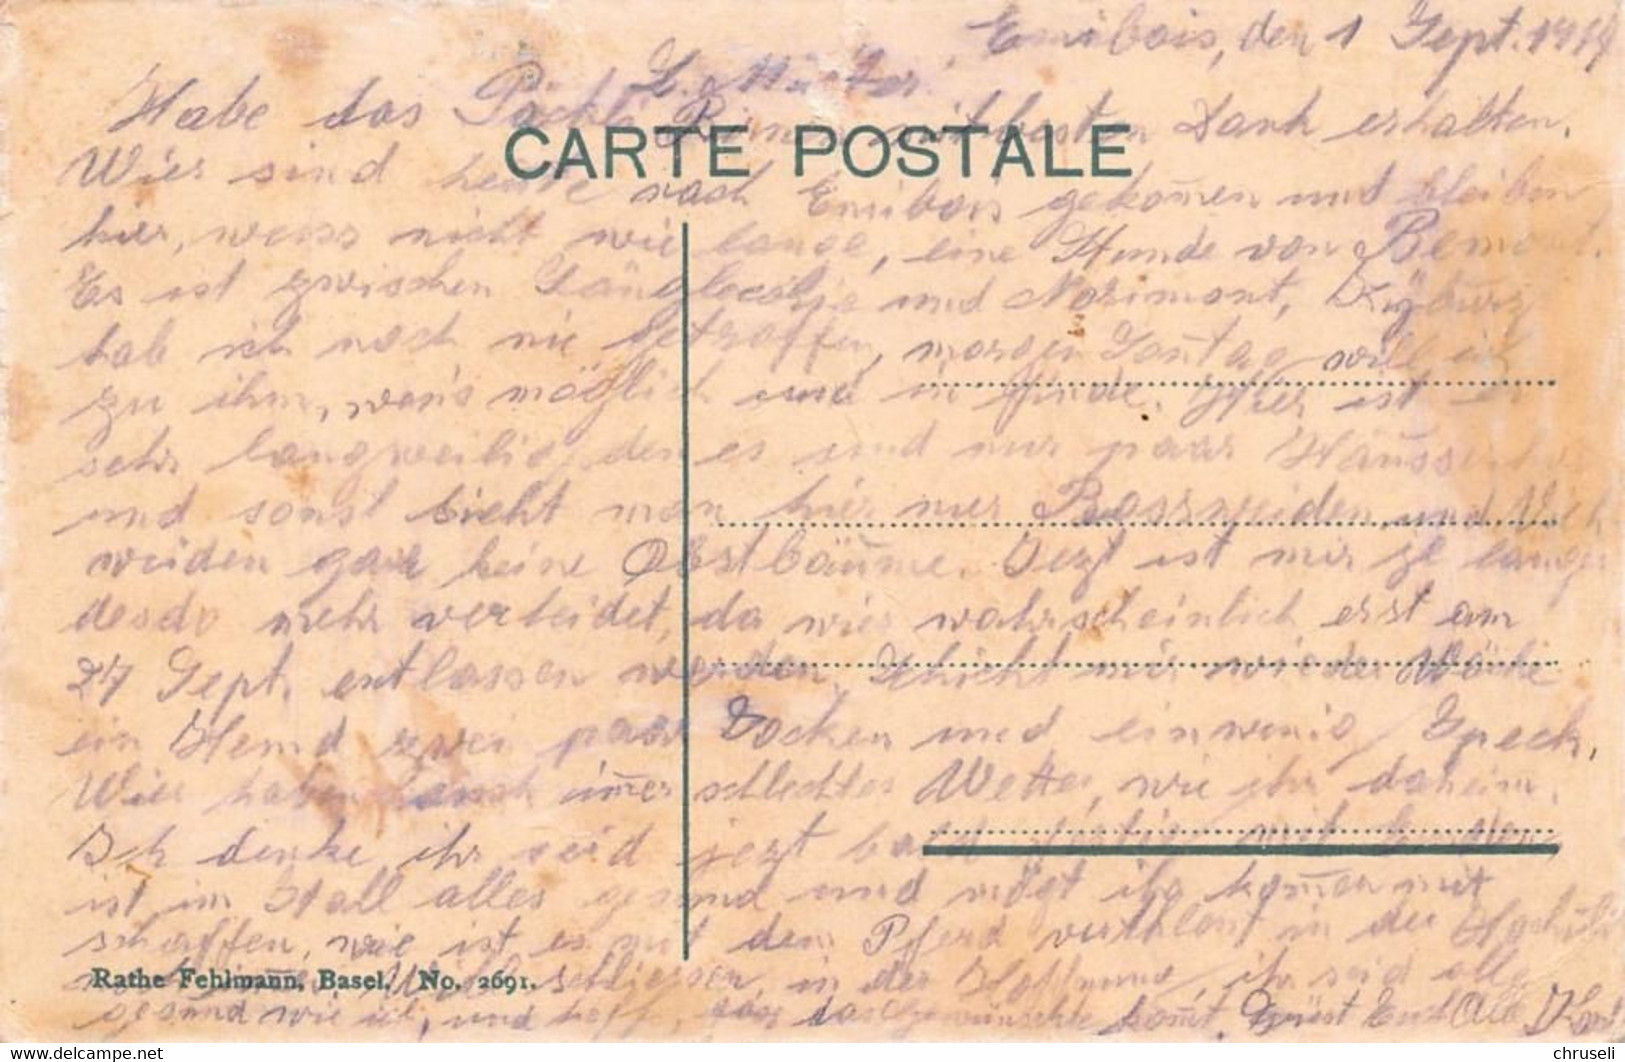 Emibois, den 1 Sept. 1914
L. Mutter.
Habe das Päckli mit besten Dank erhalten.
CARTE POSTALE
Wier sind heute nach Emibois gekom̅en und bleiben
hier, weiss nicht wie lange, eine Stunde von Bemont.
Es ist zwischen und Norimont,
hab ich noch nie getroffen, morgen Sontag will ich
zu ihm, wen's möglich und in finde. Hier ist es
sehr langweilig, den es sind nur paar
und sonst sieht man hier nur Rossweiden und Vieh
weiden gar keine Obstbäume. Jezt ist mir je länger
desdo mehr verleidet, da wier wahrscheinlich erst am
27 Sept. entlassen werden. Schickt mir wieder Wäsche
ein Hemd zwei paar Socken und einwenig Speck,
Wier haben im̅er schlechtes Wetter, wie ihr daheim.
Ich denke ihr seid jezt bald fertig mit
ist im Stall alles gesund und mögt ihr kom̅en mit
schaffen, wie ist es mit dem Pferd in der
schliessen, in der Hoffnung, ihr seid alle
Rathe Fehlmann, Basel. No. 2691.
gesund wie ich, und hoffe, das das gewünschte kom̅t. Grüsst Euch Alle
chruseli